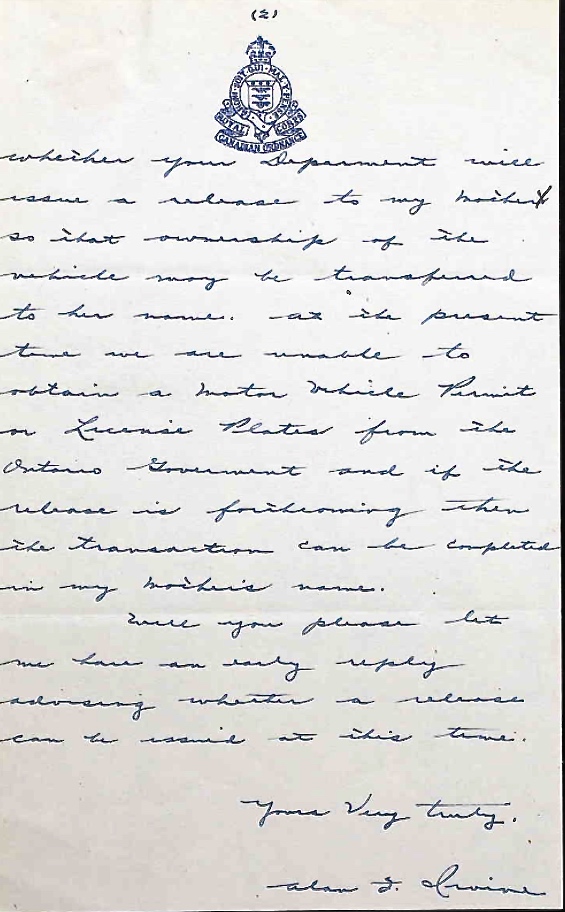 (2)
HONI·SOIT·QUI·MAL·Y·PENSE
ROYAL CORPS
CANADIAN ORDNANCE
whether your Deparment will
issue a release to my Mother
so that ownership of the
vehicle may be transferred
to her name. at the present
time we are unable to
obtain a Motor Vehicle Permit
or License Plates from the
Ontario Goverment and if the
release is forthcoming then
the transaction can be completed
in my Mother's name.
Will you please let
me have an early reply
advising whether a release
can be issued at this time.
Yours Very truly,
Alan F. Irvine